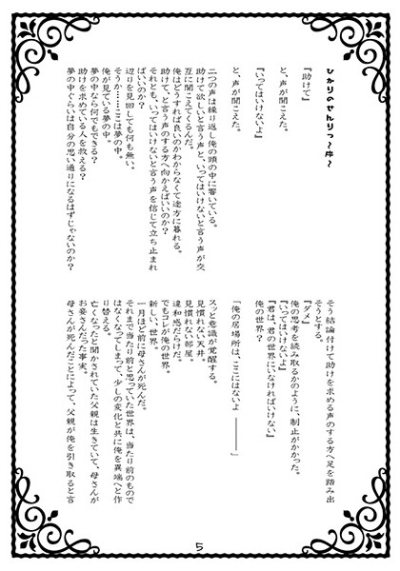 ひかりのせんりつ～序～
『助けて』
と、声が聞こえた。
『いってはいけないよ』
と、声が聞こえた。
二つの声は繰り返し俺の頭の中に響いている。
助けて欲しいと言う声と、いってはいけないと言う声が交
互に聞こえてくるんだ。
俺はどうすれば良いのかわからなくて途方に暮れる。
助けて、と言う声のする方へ向かえばいいのか？
それとも、いってはいけないと言う声を信じて立ち止まれ
ばいいのか？
辺りを見回しても何も無い。
そうか……ここは夢の中。
俺が見ている夢の中。
夢の中なら何でもできる？
助けを求めている人を救える？
夢の中ぐらいは自分の思い通りになるはずじゃないのか？
そう結論付けて助けを求める声のする方へ足を踏み出
そうとする。
『ダメ』
『いってはいけないよ』
俺の思考を読み取るかのように、制止がかかった。
『君は、君の世界にいなければいけない』
俺の世界？
「俺の居場所は、ここにはないよ――――」
スッと意識が覚醒する。
見慣れない天井。
見慣れない部屋。
違和感だらけだ。
でもコレが俺の世界。
新しい、世界。
一月ほど前に母さんが死んだ。
それまで当たり前と思っていた世界は、当たり前のもので
はなくなってしまって、少しの変化と共に俺を異端へと作
り替える。
亡くなったと聞かされていた父親は生きていて、母さんが
お妾さんだった事実。
母さんが死んだことによって、父親が俺を引き取ると言
5